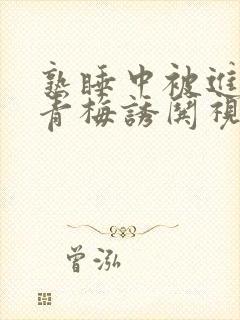 熟睡中被進
青梅誘関視
曾泓